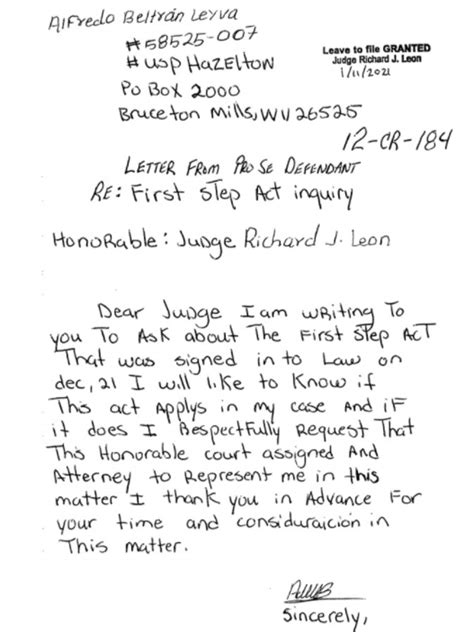 Alfredo Beltrán Leyva
#58525-007
# USP HAZELTON
PO BOX 2000
Bruceton Mills, WV 26525
Leave to file GRANTED
Judge Richard J. Leon
1/11/2021
12-CR-184
LETTER FROM PRO SE DEFENDANT
RE: First STep Act inquiry
HonoRable: Judge Richard J. Leon
Dear Judge I am wRiting To
you To Ask about The First Step AcT
That was signed in to Law on
dec, 21 I will like to Know if
This act Applys in my case And iF
it does I RespectFully Request That
This Honorable court assigned And
Atterney to Represent me in this
matter I thank you in Advance For
your time and considuraición in
This matter.
Sincerely,